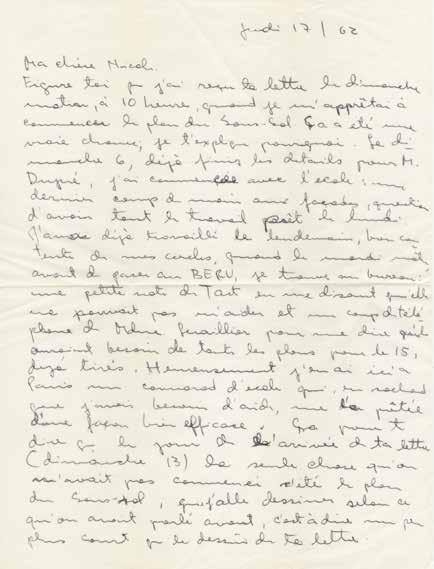 jeudi 17 / 62
Ma chère Nicole.
Figure toi q j'ai reçu ta lettre le dimanche
matin, à 10 heure, quand je m'apprêtai à
commencer le plan du Sous-Sol Ça a été une
vraie chance, je t'explique pourquoi. Le di-
manche 6, déjà finis les détails pour M.
Dupré, j'ai commencée avec l'école: un
dernier coup de main aux façades, question
d'avoir tout le travail prêt le lundi
J'avais déjà travaillé le lendemain, bon con
tente de mes cercles, quand le mardi
avant de passer au BERU, je trouve au bureau:
une petite note de Tart en me disant qu'elle
ne pouvait pas m'aider et un coup d télé
phone de Mdme pour me dire qu'ils
auraient besoin de touts les plans pour le 15,
déjà tirés. Heureusement j'en ai ici à
Paris un camarad d'école qui, en sachant
que j'avais besoin d'aide, me l'a
d'une façon bien efficace. Ça pour t
dire q le jour de l'arrivée de ta lettre
(dimanche 13) la seule chose qu'on
n'avait pas commencé c'été le plan
du Sous-sol, que j'allé dessiner selon ce
qu'on avait parlé avant, c'est à dire un peu
plus court q le dessin de ta lettre.